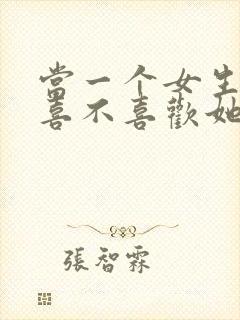 當一个女生
喜不喜歡她
張智霖